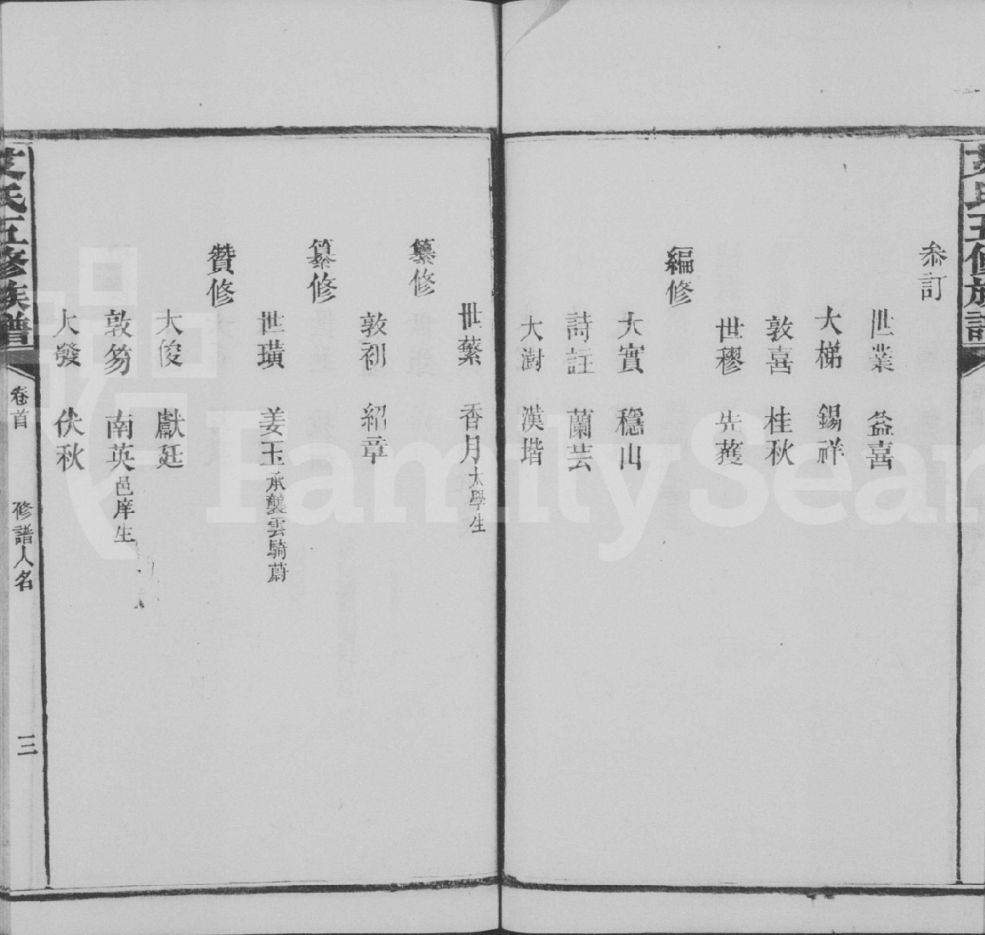 参訂
世業　益喜
大梯　錫祥
敦喜　桂秋
世穆　先蒦
編修
大實　穩山
詩註　蘭芸
大澍　漢堦
世蘩　香月太學生
纂修
敦初　紹章
纂修
世璜　姜玉承襲雲騎尉
贊修
大俊　獻廷
敦芴　南英邑庠生
大發　佚秋
艾氏五修族譜
卷首
修譜人名
三
FamilySear